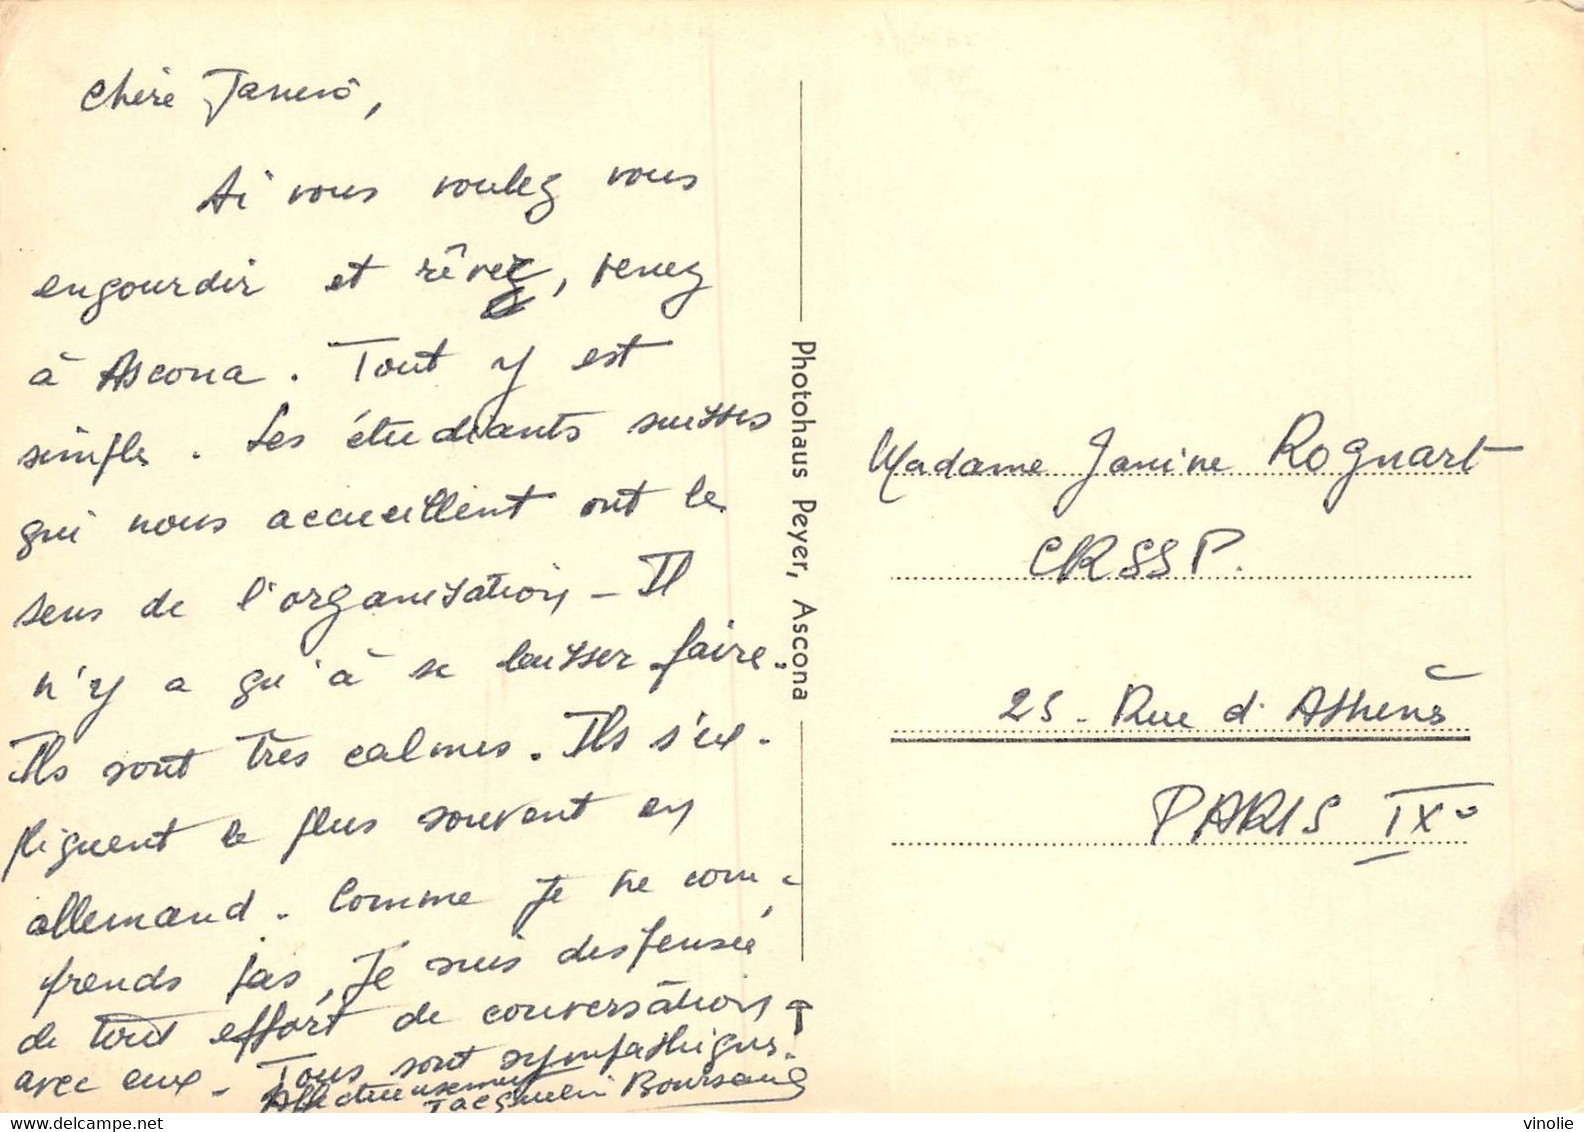 Chère Janine,
Si vous voulez vous
engourdir et rêver, venez
à Ascona. Tout y est
simple. Les étudiants suisses
qui nous accueillent ont le
sens de l'organisation - Il
n'y a qu'à se laisser faire.
Ils sont très calmes. Ils s'ex-
pliquent le plus souvent en
allemand. Comme je ne com-
prends pas, je suis dispensée
de tout effort de conversation
avec eux - Tous sont sympathiques.
Affectueusement
Photohaus Peyer, Ascona
Madame Janine Rognart
CRSSP.
25 - Rue d'Athènes
PARIS IXe
delcampe.net
vinolie